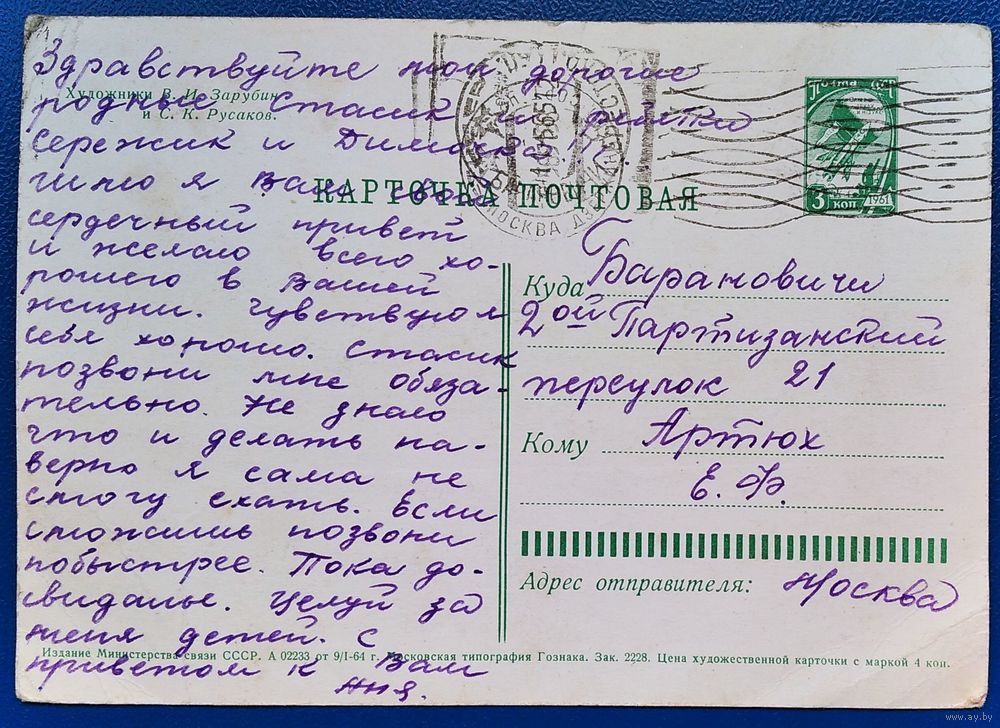 Здравствуйте мои дорогие
родные Стасик и детки
Сережик и Димочка!
Шлю я Вам свой
сердечный привет
и желаю всего хо-
рошего в Вашей
жизни. Чувствую я
себя хорошо. Стасик
позвони мне обяза-
тельно. Не знаю
что и делать на-
верно я сама не
смогу ехать. Если
сможишь позвони
побыстрее. Пока до-
свиданье. Целуй за
меня детей. С
приветом к Вам
Аня.
Художники В. И. Зарубин
и С. К. Русаков.
КАРТОЧКА ПОЧТОВАЯ
МОСКВА
ПОЧТА СССР
3 КОП
1961
Куда Барановичи
2ой Партизанский
переулок 21
Кому Артюх
Е. Ф.
Адрес отправителя: Москва
Издание Министерства связи СССР. А 02233 от 9/I-64 г. Московская типография Гознака. Зак. 2228. Цена художественной карточки с маркой 4 коп.
www.ay.by